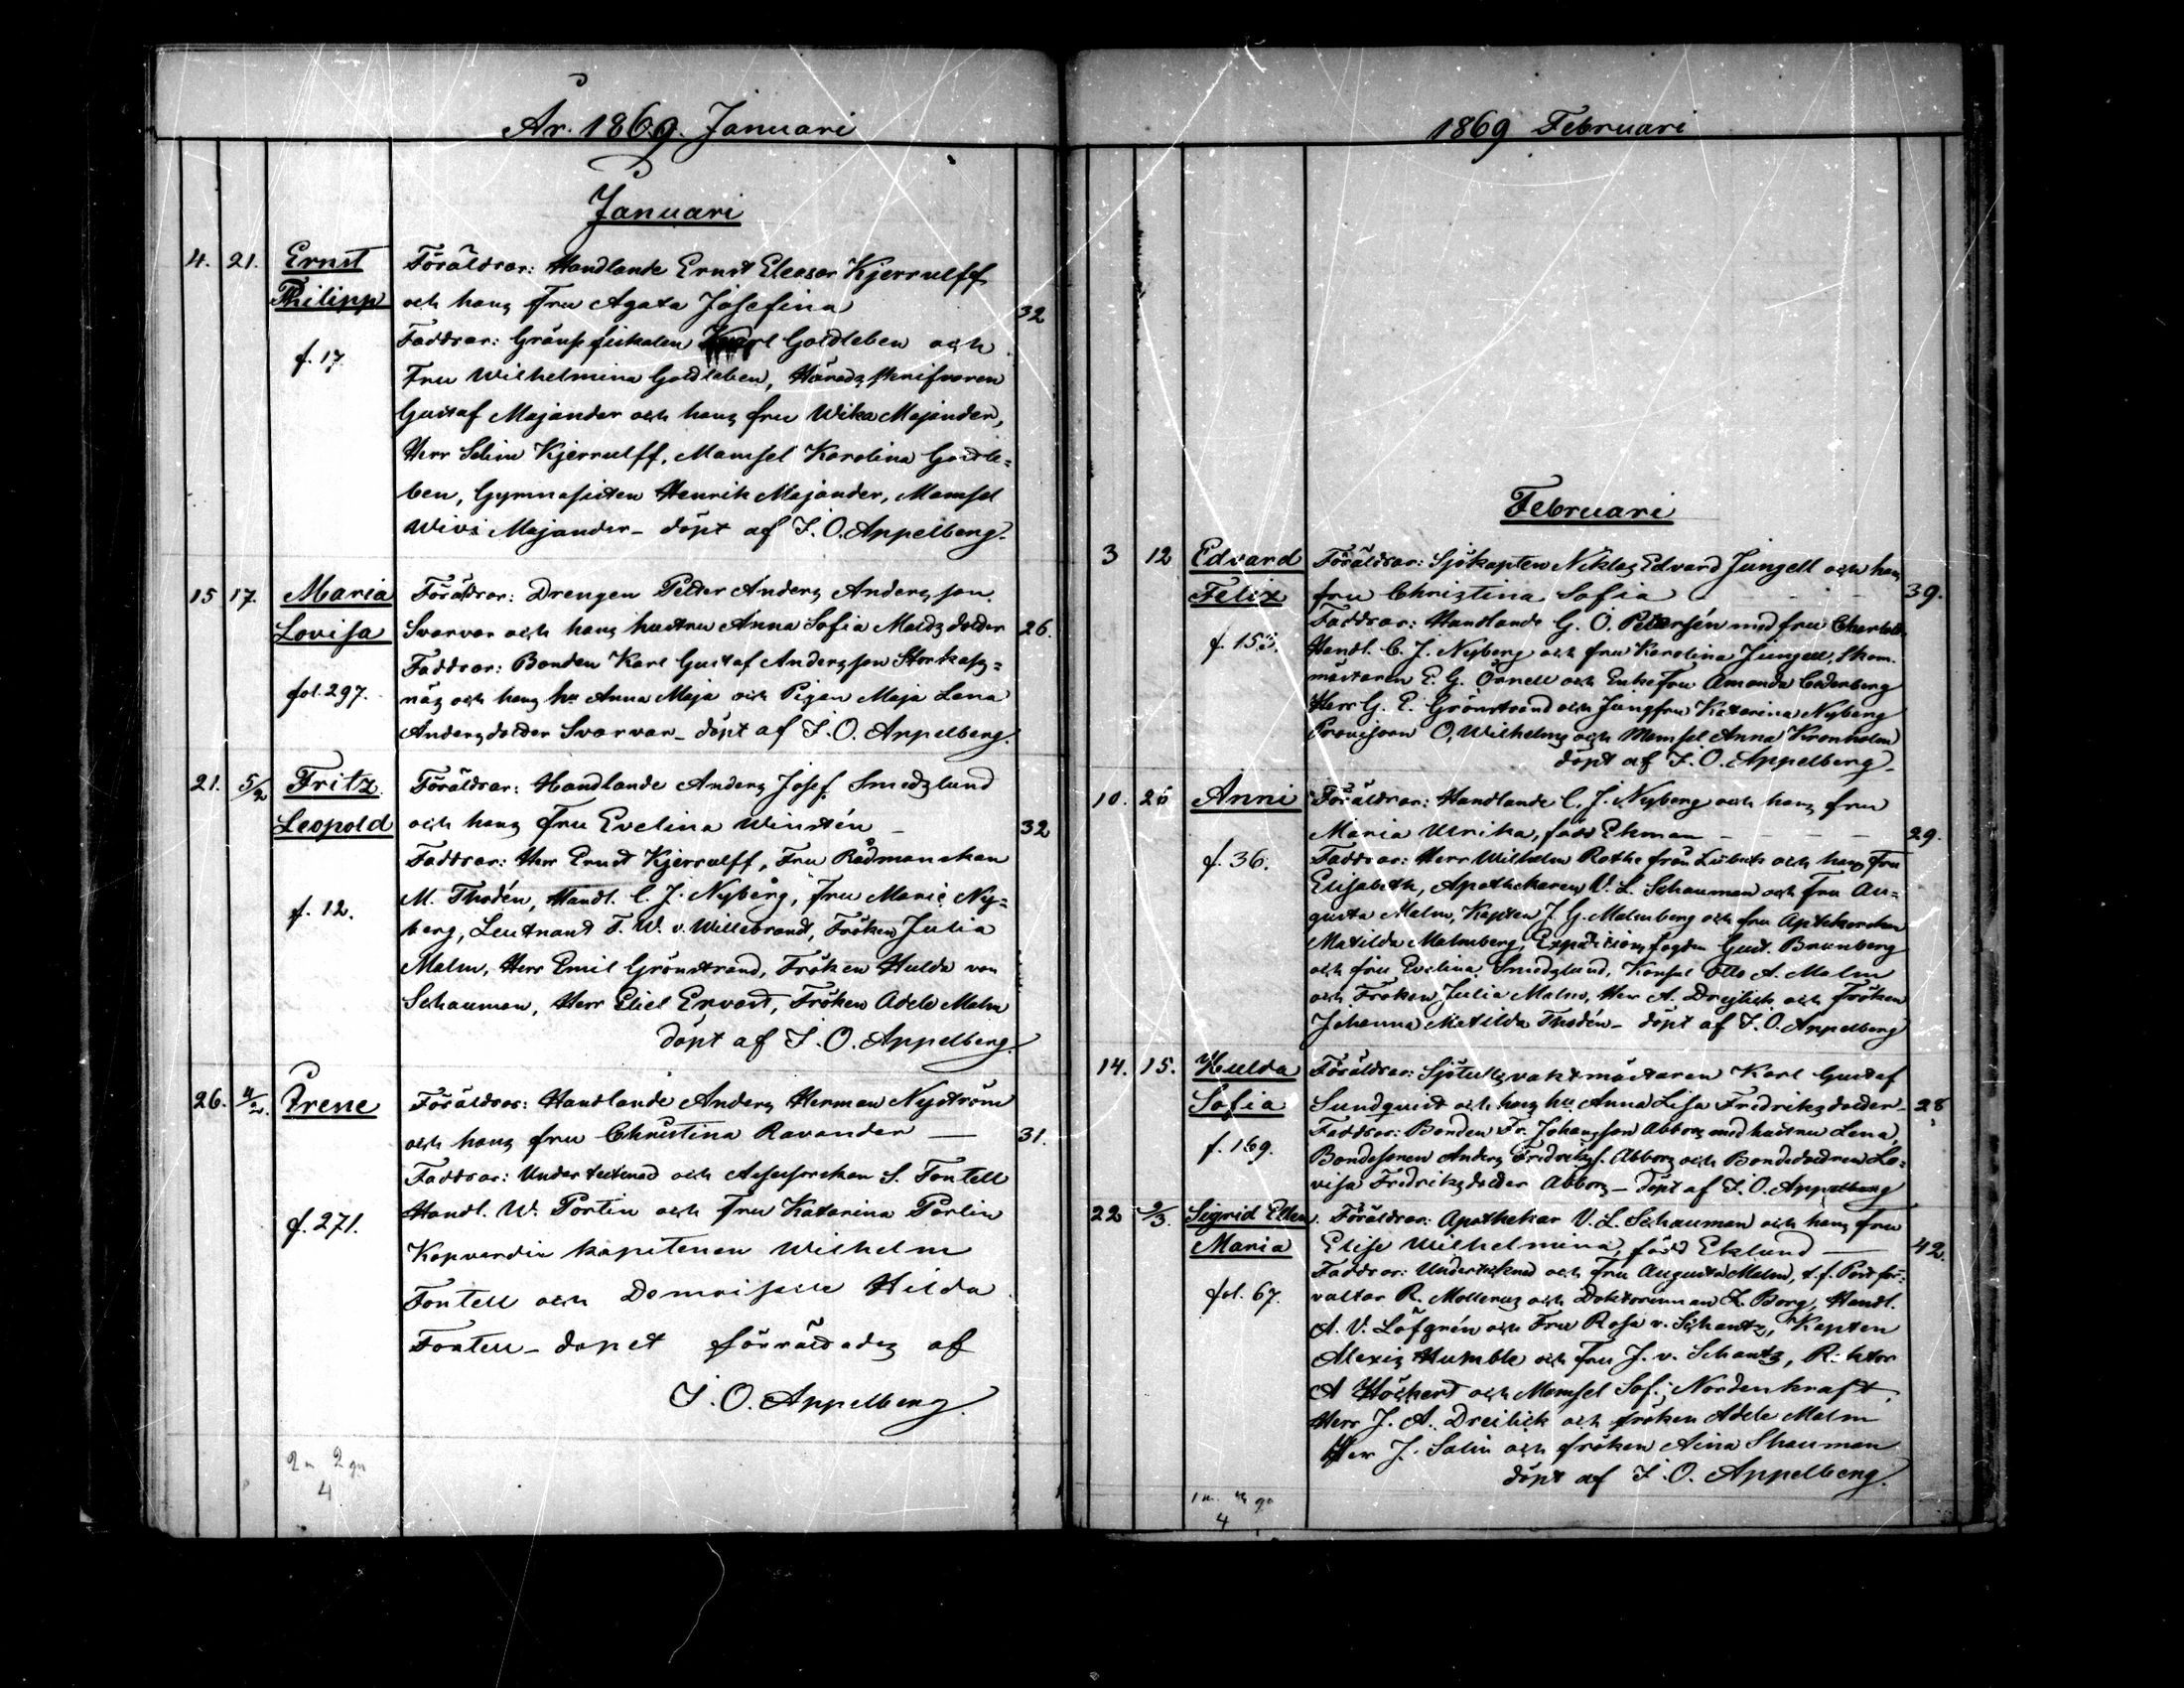 År. 1869. Januari
Januari
4. 21. Ernst Föräldrar: Handlande Ernst Eleasar Kjerrulff
Philipp och hans Fru Agata Josefina 32
Faddrar: Gränsfiskalen Karl Goldleben och
f. 17. Fru Wilhelmina Goldleben, Häradsskrifvaren
Gustaf Majander och hans fru Wika Majander,
Herr Selim Kjerrulff, Mamsel Karolina Goldle=
ben, Gymnasisten Henrik Majander, Mamsel
Wivi Majander – döpt af I. O. Appelberg.
15 17. Maria Föräldrar: Drengen Petter Anders Andersson
Lovisa Svarvar och hans hustru Anna Sofia Matsdotter 26.
Faddrar: Bonden Karl Gustaf Andersson Storkas=
fol. 297. näs och hans hu Anna Maja och Pigan Maja Lena
Andersdotter Svarvar – döpt af I. O. Appelberg.
21. 5/2 Fritz Föräldrar: Handlande Anders Josef Smedslund
Leopold och hans Fru Evelina Winstén – 32
Faddrar: Herr Ernst Kjerrulff, Fru Rådmanskan
f. 12. M. Thodén, Handl. C. J. Nyberg, fru Marie Ny=
berg, Leutnant F. W. v. Willebrandt, Fröken Julia
Malm, Herr Emil Grönstrand, Fröken Hulda von
Schauman, Herr Eliel Ervast, Fröken Adele Malm
döpt af I. O. Appelberg.
26. 4/2. Irene Föräldrar: Handlande Anders Herman Nyström
och hans fru Christina Ravander — 31.
Faddrar: Undertecknad och Assessorskan S. Fontell
f. 271. Handl. W. Portin och Fru Katarina Portin
Kopverdie kapitenen Wilhelm
Fontell och Demoiselle Hilda
Fontell – dopet förrättades af
I. O. Appelberg.
2 m 2 qv
4
1869 Februari
Februari
3 12 Edvard Föräldrar: Sjökapten Niklas Edvard Jungell och hans
Felix fru Christina Sofia – – – 39.
Faddrar: Handlande G. O. Petersén med fru Charlott.
f. 153. Handl. C. J. Nyberg och fru Karolina Jungell, Skom.
mästaren E. G. Örnell och Enkefru Amanda Cederberg
Herr G. E. Grönstrand och Jungfru Katarina Nyberg
Provisorn O. Wilhelms och Mamsel Anna Kronholm
döpt af I. O. Appelberg.
10. 26 Anni Föräldrar: Handlande C. J. Nyberg och hans fru
Maria Ulrika, född Ekman – – – 29.
f. 36. Faddrar: Herr Wilhelm Rothe från Lübeck och hans Fru
Elisabeth, Apothekaren V. L. Schauman och Fru Au=
gusta Malm, Kapten J. G. Malmberg och fru Aptekerskan
Matilda Malmberg, Expeditionsfogden Gust. Brunberg
och fru Evelina Smedslund, Konsul Otto A. Malm
och Fröken Julia Malm, Herr A. Dreilick och Fröken
Johanna Matilda Thodén – döpt af I. O. Appelberg
14. 15. Hulda Föräldrar: Sjötullsvaktmästaren Karl Gustaf
Sofia Sundqvist och hans hu Anna Lisa Fredriksdotter – 28
Faddrar: Bonden Fr. Johansson Abbors med hustru Lena,
f. 169. Bondesonen Anders Fredrikss. Abbors och Bondedottren Lo=
visa Fredriksdotter Abbors – döpt af I. O. Appelberg
22 3/3. Sigrid Ellen Föräldrar: Apothekar V. L. Schauman och hans fru
Maria Elise Wilhelmina, född Eklund — 42.
Faddrar: Undertecknad och fru Augusta Malm, t. f. Postför=
fol. 67. valtar R. Mollerus och Doktorinnan Z. Borg, Handl.
A. V. Löfgrén och Fru Rosa v. Schantz, Kapten
Alexis Humble och Fru J. v. Schantz, Rektor
A Höckert och Mamsel Sof. Nordenkraft,
Herr J. A. Dreilick och fröken Adele Malm
Herr J. Salin och fröken Aina Shauman
döpt af I. O. Appelberg.
4